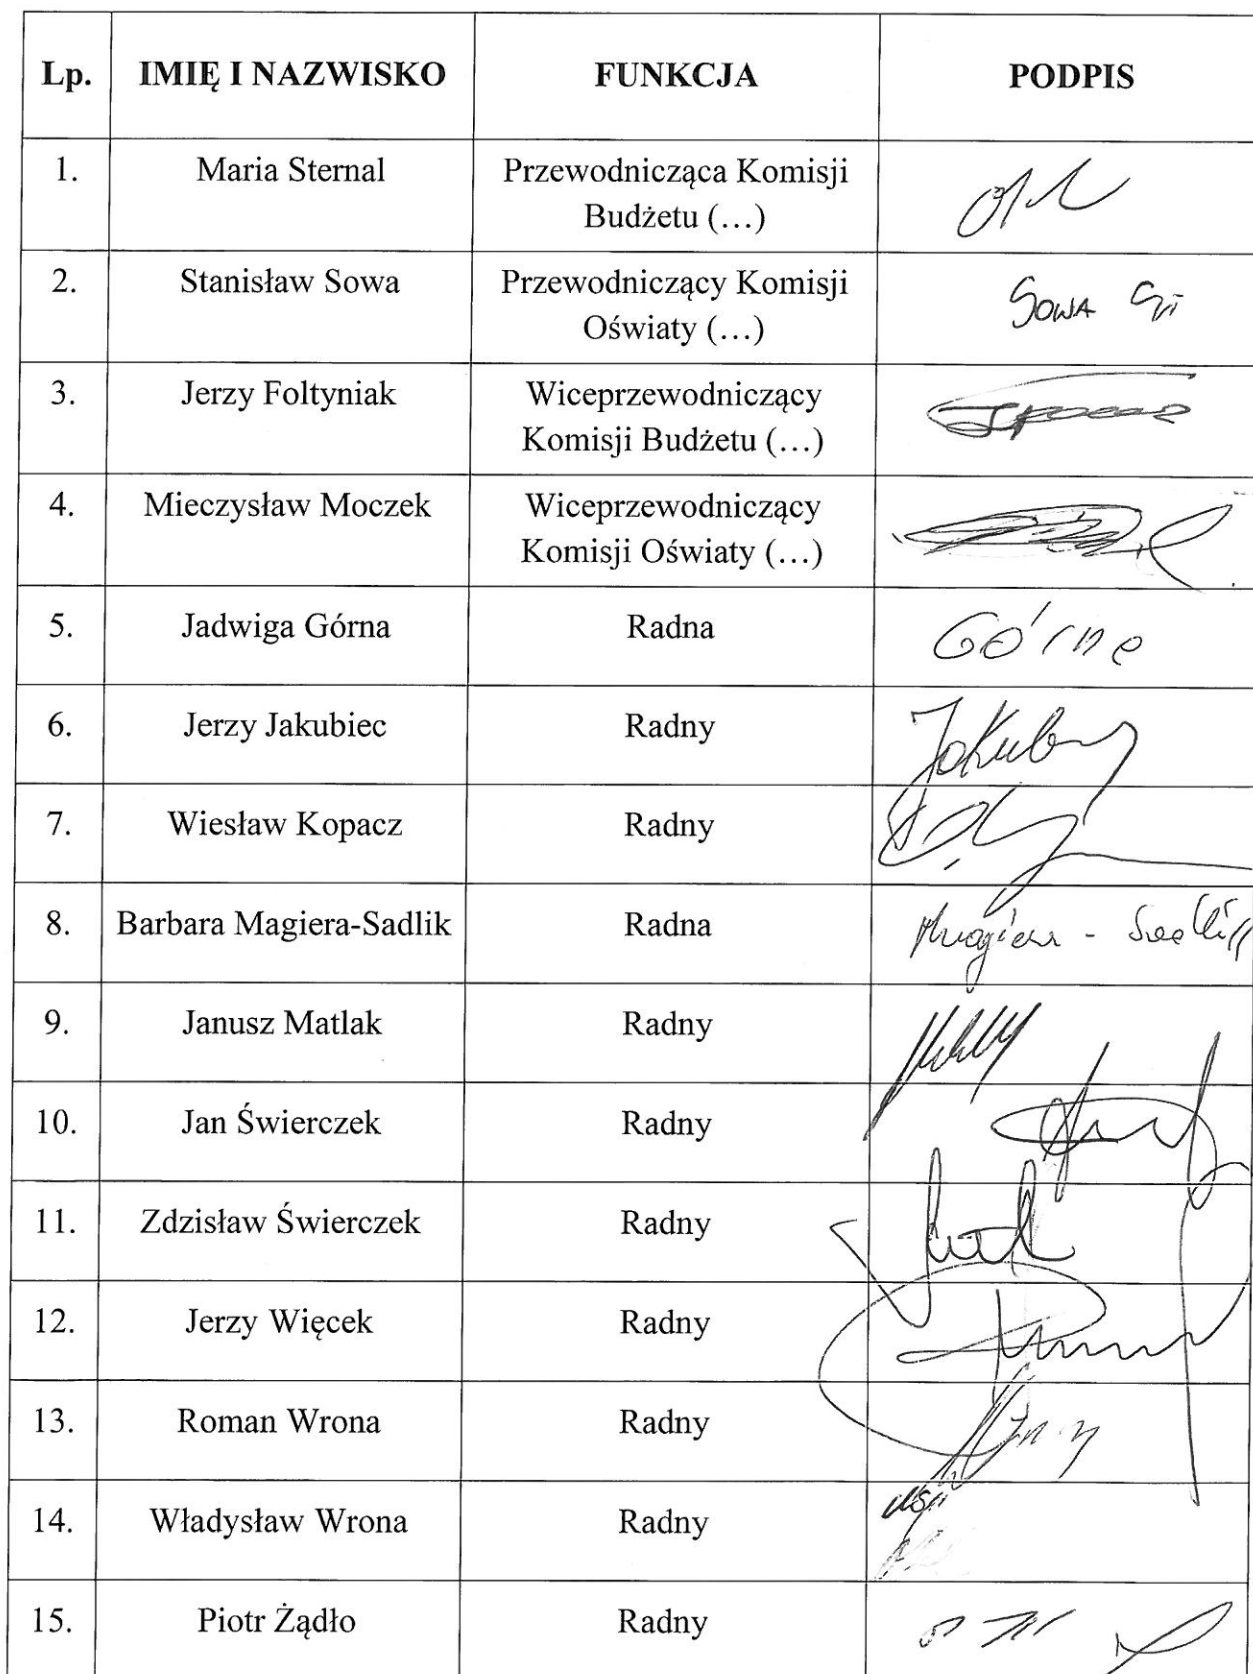 Lp. IMIĘ I NAZWISKO FUNKCJA PODPIS
1. Maria Sternal Przewodnicząca Komisji
Budżetu (…)
2. Stanisław Sowa Przewodniczący Komisji SOWA
Oświaty (…)
3. Jerzy Foltyniak Wiceprzewodniczący
Komisji Budżetu (…)
4. Mieczysław Moczek Wiceprzewodniczący
Komisji Oświaty (…)
5. Jadwiga Górna Radna Górna
6. Jerzy Jakubiec Radny
7. Wiesław Kopacz Radny
8. Barbara Magiera-Sadlik Radna Magiera - Sadlik
9. Janusz Matlak Radny
10. Jan Świerczek Radny
11. Zdzisław Świerczek Radny
12. Jerzy Więcek Radny
13. Roman Wrona Radny
14. Władysław Wrona Radny
15. Piotr Żądło Radny